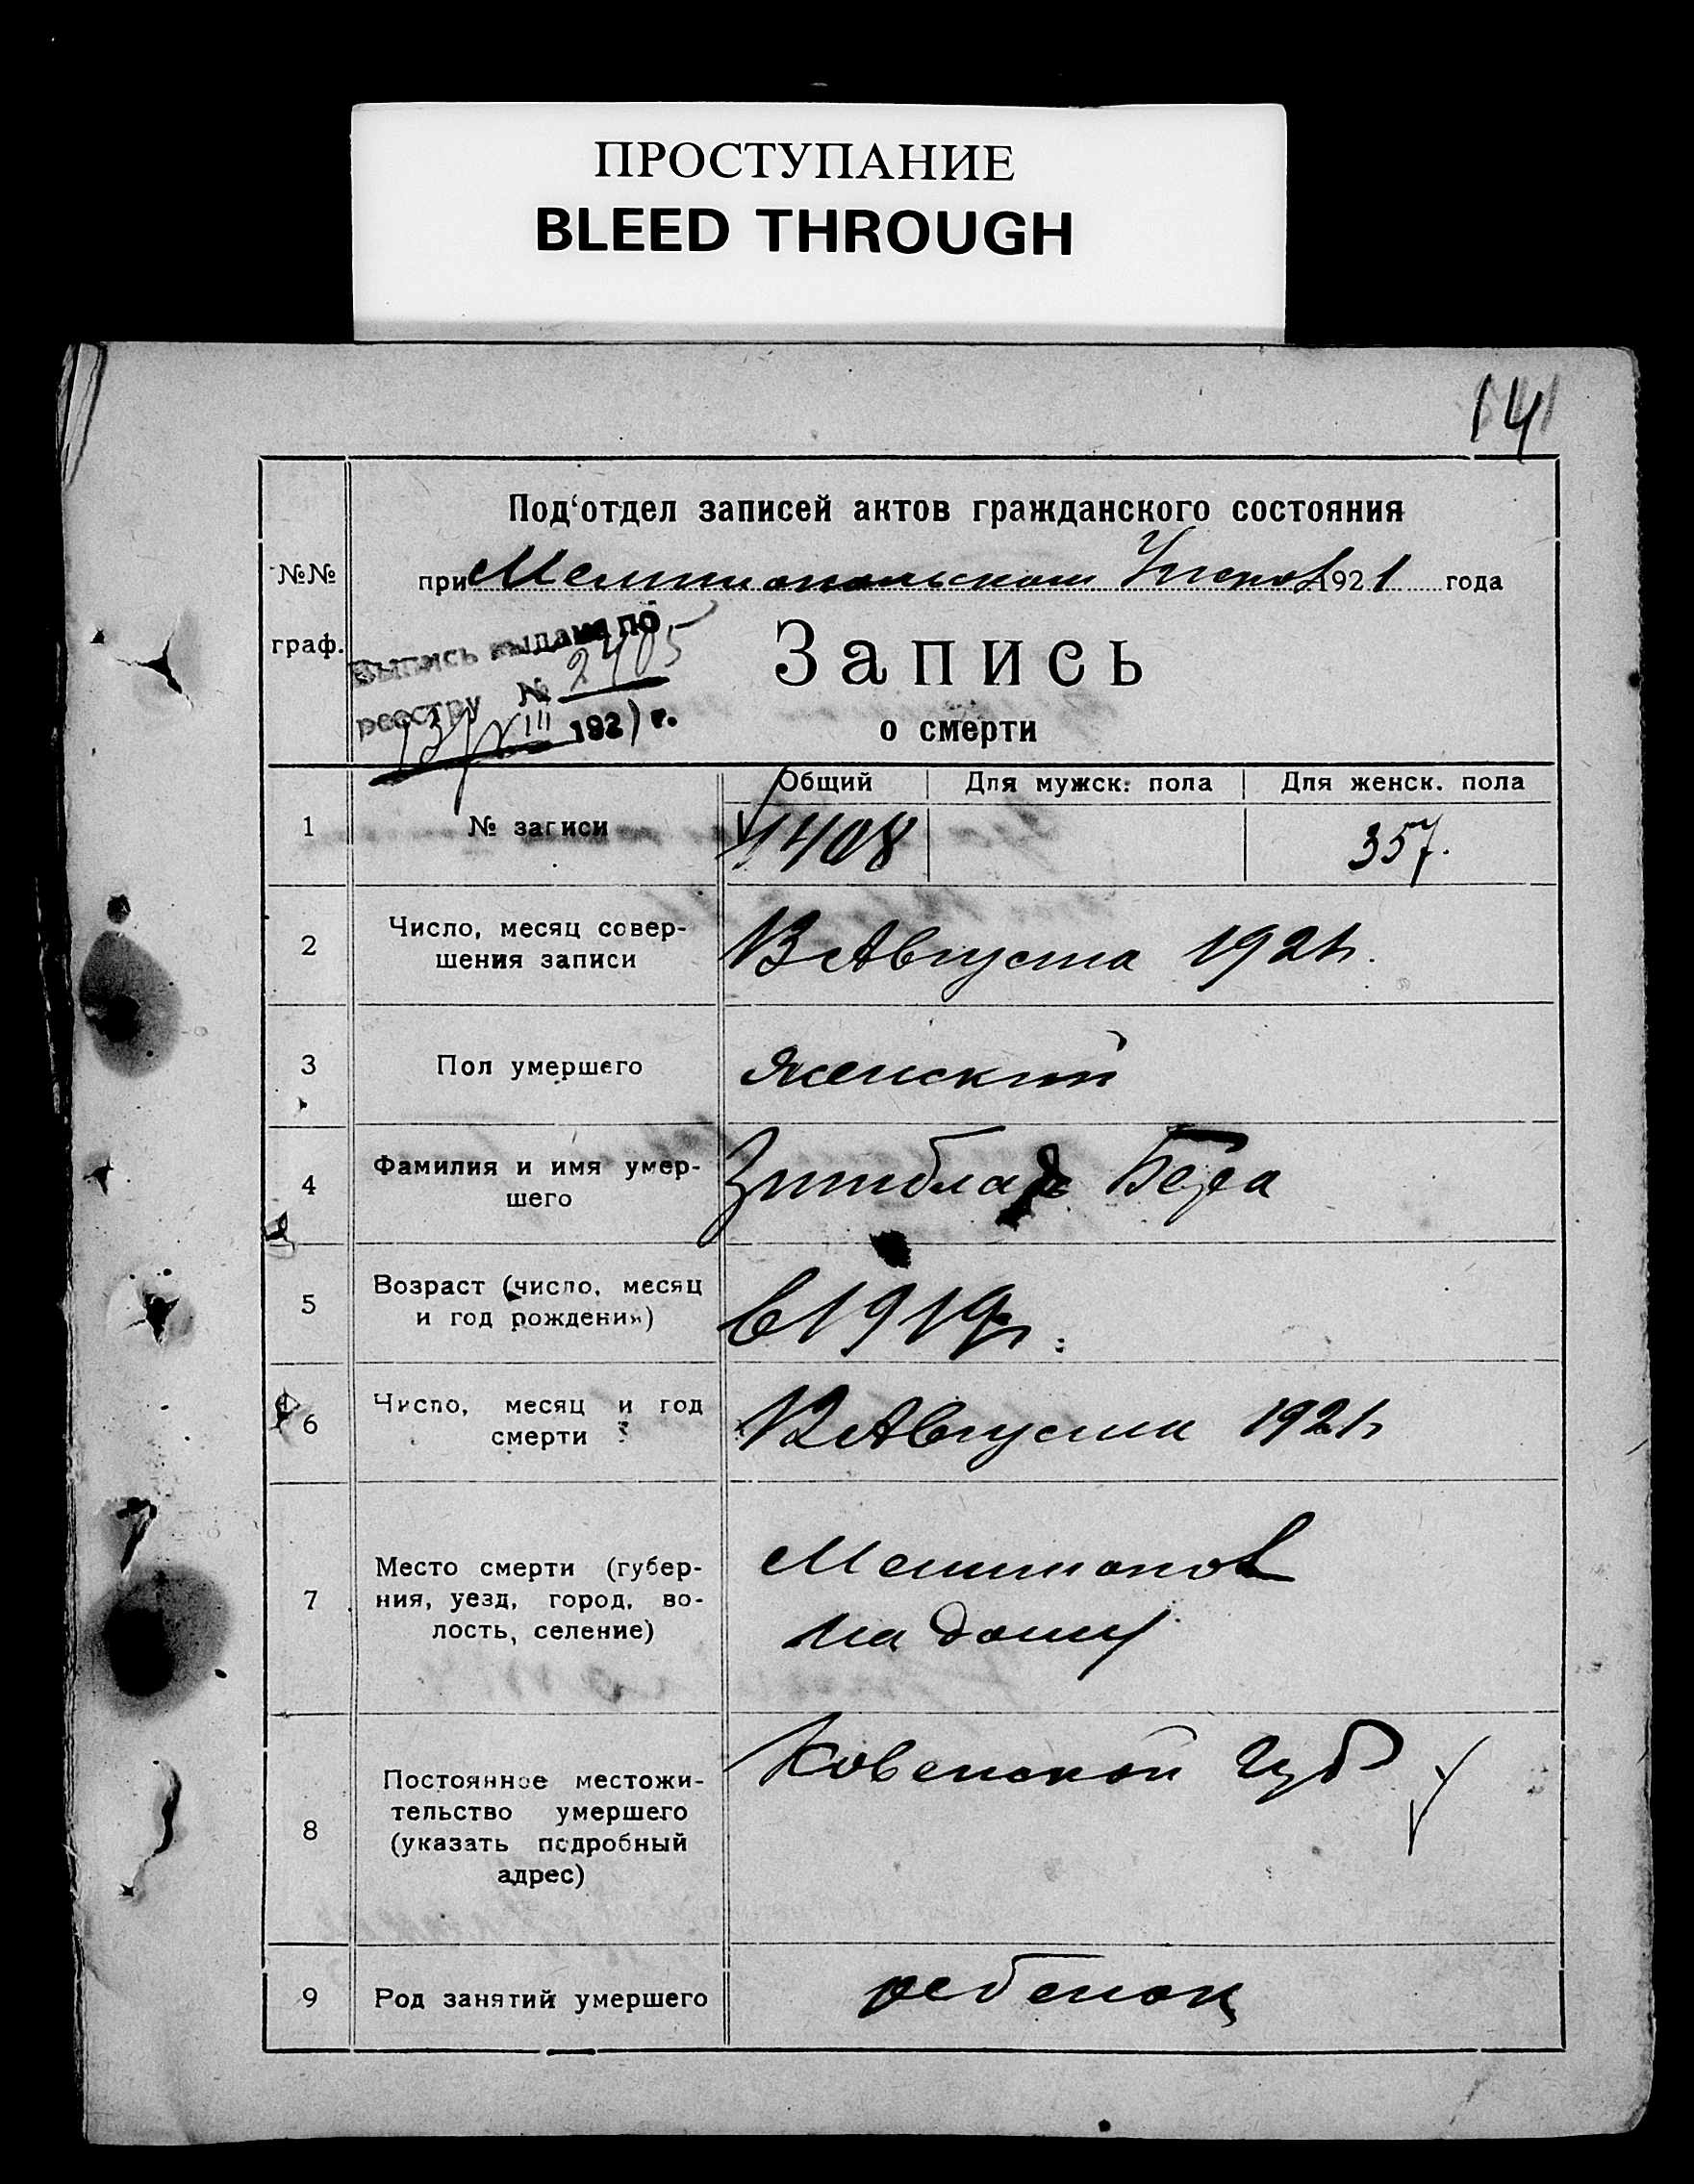 ПРОСТУПАНИЕ
BLEED THROUGH
141
Под'отдел записей актов гражданского состояния
№№
граф.
при Мелитопольском 1921 года
Выпись выдана по
реестру № 2405
13/VIII 1921 г.
Запись
о смерти
Общий Для мужск. пола Для женск. пола
1 № записи 1408 357.
2 Число, месяц совер-
шения записи
13 Августа 1921 г.
3 Пол умершего женский
4 Фамилия и имя умер-
шего
5 Возраст (число, месяц
и год рождения)
в 1919 г.
6 Число, месяц и год
смерти
12 Августа 1921 г.
7 Место смерти (губер-
ния, уезд, город, во-
лость, селение)
Мелитопол
на дому
8 Постоянное местожи-
тельство умершего
(указать подробный
адрес)
Ковенской губ
9 Род занятий умершего ребенок